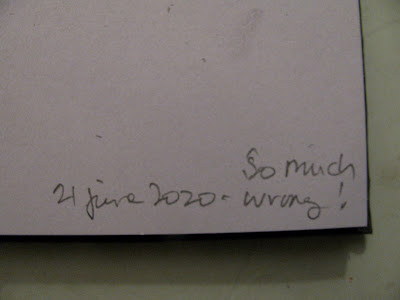 So much
21 june 2020 - wrong!